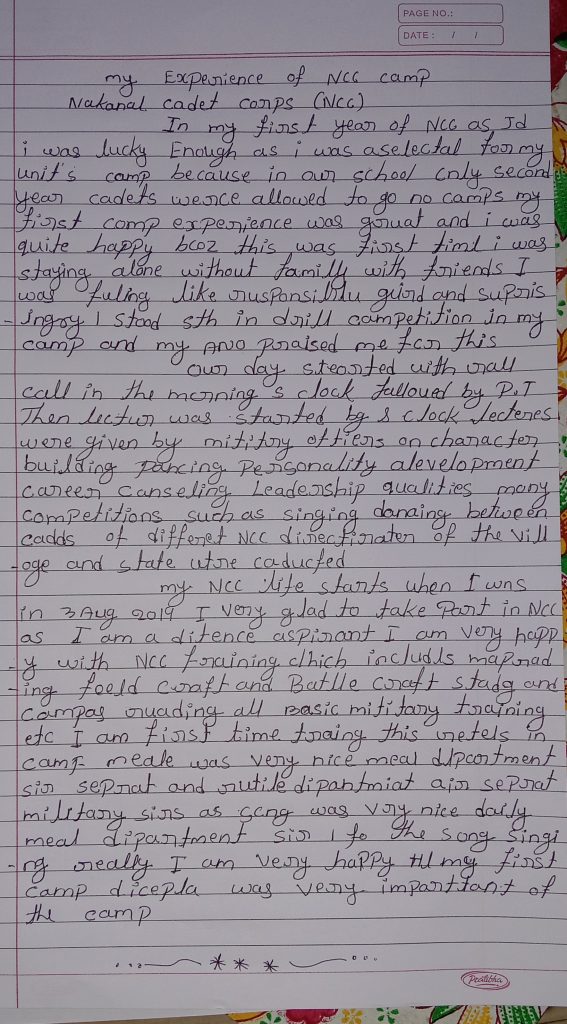 PAGE NO.:
DATE: / /
my Experience of NCC camp
Nakanal cadet corps (NCC)
In my first year of NCC as Jd
i was lucky Enough as i was aselectal for my
unit's camp because in our school cnly second
year cadets weree allowed to go no camps my
first comp experience was gruat and i was
quite happy bcoz this was first timl i was
staying alone without familly with friends I
was fuling like rusponsibilu guird and supris
-ingoy I stood 5th in drill competition in my
camp and my ANO praised me for this
our day stearted with rall
call in the morning 5 clock falloued by P.T
Then lectur was started by 8 clock lecteres
were given by mititry offiers on character
building Dancing Personality alevelopment
career canseling Leadership qualities many
Competitions such as singing danaing between
cadds of differet NCC directiraten of the vill
-age and state utre caducfed
my NCC life starts when I wns
in 3 Aug 2019 I very glad to take Part in NCC
as I am a ditence aspirant I am very happ
-y with NCC fraining clhich includls maprad
-ing foeld craft and Batlle craft stadg and
campas ruading all Basic mititary training
etc I am first time traing this in
camp meale was very nice meal dlpcortment
sir seprat and rutile dipantmiat air seprat
military sirs as gcng was vry nice daily
meal dipartment sir I fo the song singi
-ng really I am very happy my first
camp dicepla was very importtant of
the camp
Pratibha